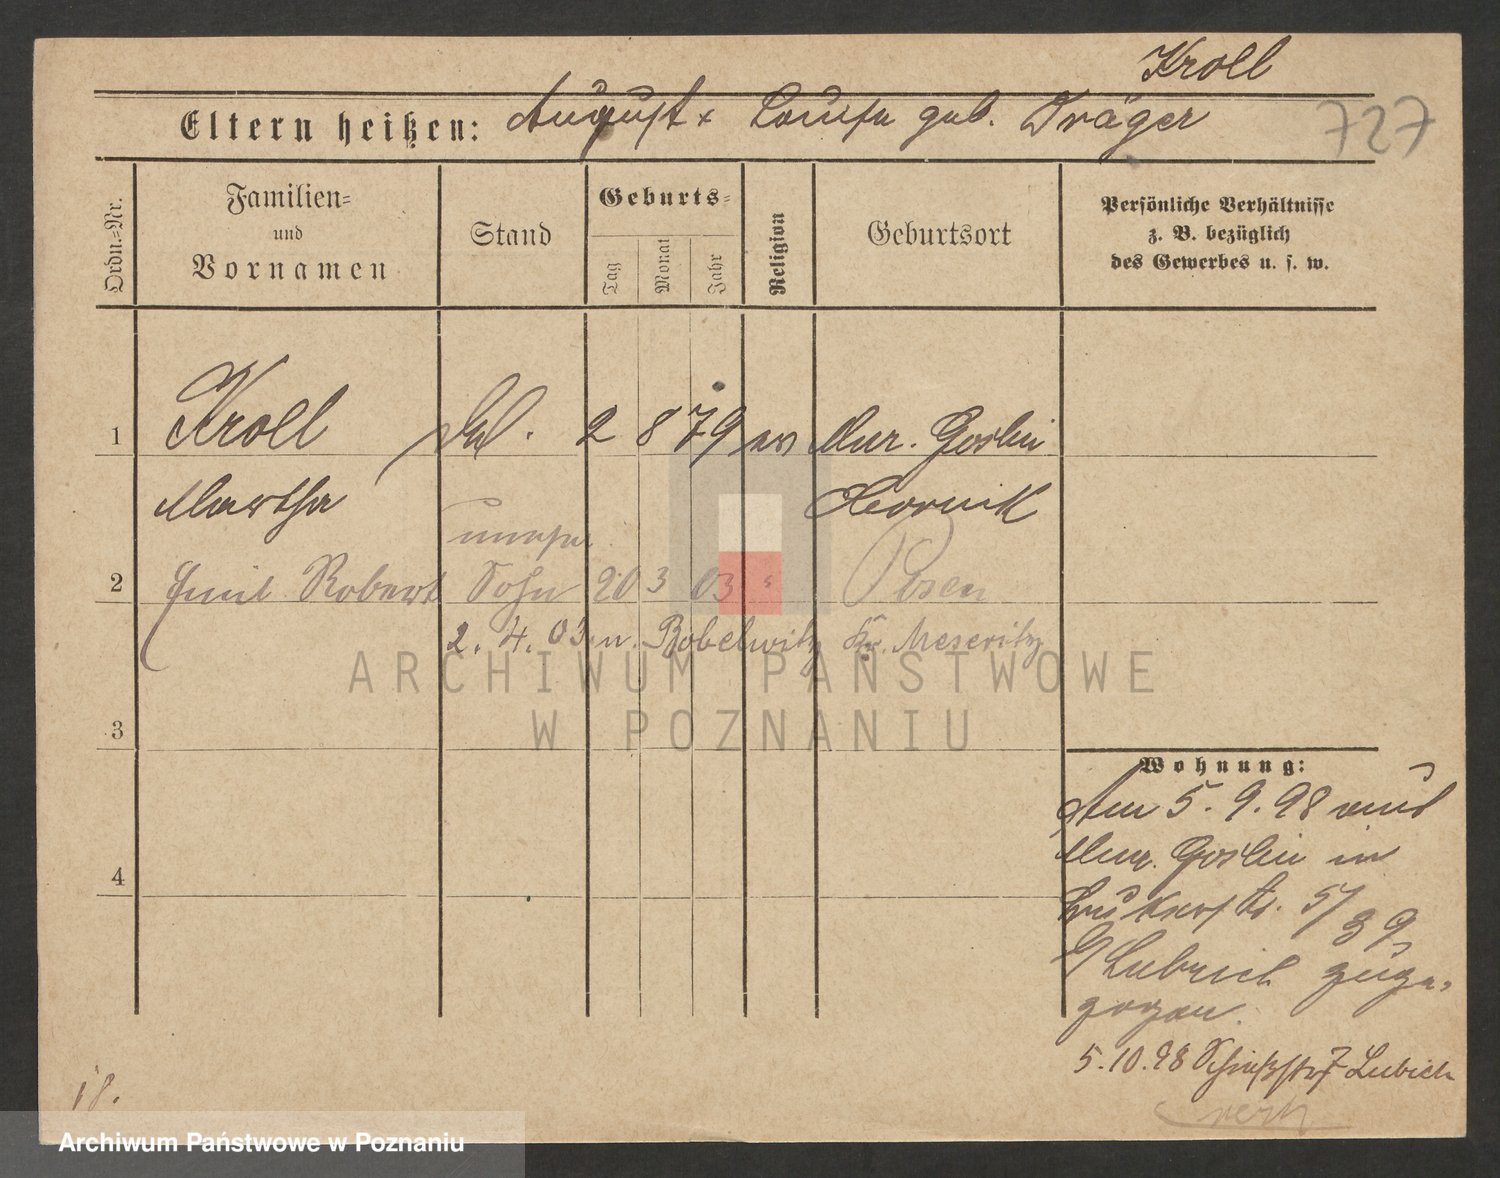 Kroll
Eltern heißen: August & Louise geb. Träger
727
Ordn.-Nr.
Familien- und Vornamen
Stand
Geburts-
Tag
Monat
Jahr
Religion
Geburtsort
Persönliche Verhältnisse
z. B. bezüglich
des Gewerbes u. s. w.
1 Kroll 2 8 79 ev Mur. Goslin
Martha Obornik
unehe.
2 Emil Robert Sohn 20 3 03 " Posen
2. 4. 03 n. Bobelwitz Kr. Meseritz
ARCHIWUM PAŃSTWOWE
W POZNANIU
3
4
Wohnung:
Am 5. 9. 98 aus
Mur. Goslin in
5/
39
b/ Lubrich zuge-
zogen.
5.10.98 Schießstr 7 Lubich
18.
Archiwum Państwowe w Poznaniu